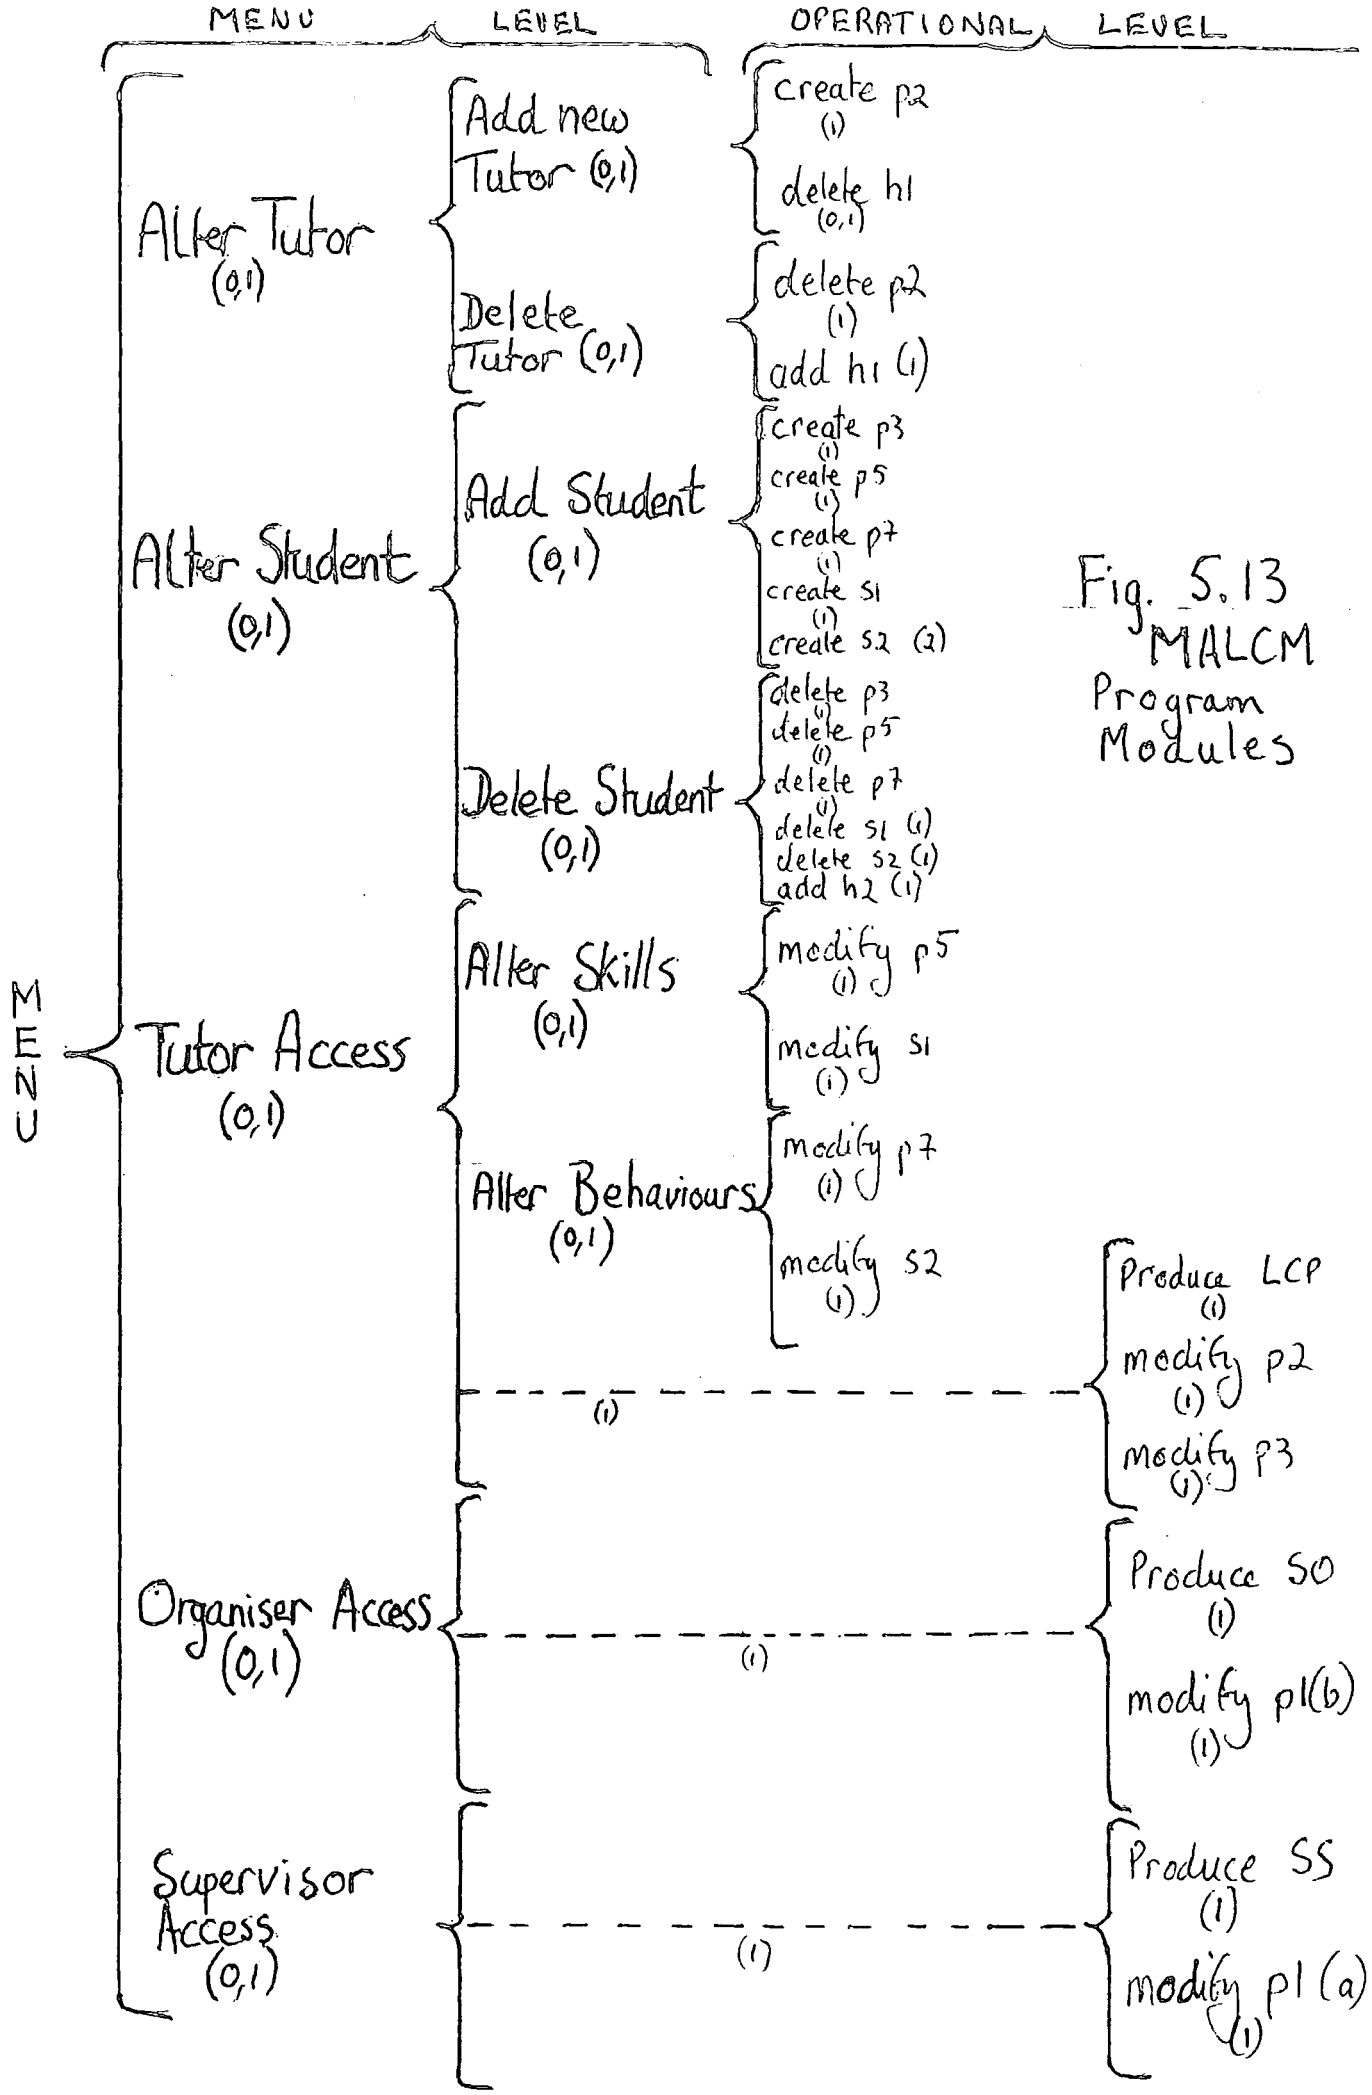 MENU LEVEL OPERATIONAL LEVEL
MENU
Alter Tutor
(0,1)
Add new
Tutor (0,1)
create p2
(1)
delete h1
(0,1)
Delete
Tutor (0,1)
delete p2
(1)
add h1 (1)
Alter Student
(0,1)
Add Student
(0,1)
create p3
(1)
create p5
(1)
create p7
(1)
create s1
(1)
create s2 (2)
Delete Student
(0,1)
delete p3
(1)
delete p5
(1)
delete p7
(1)
delete s1 (1)
delete s2 (1)
add h2 (1)
Tutor Access
(0,1)
Alter Skills
(0,1)
modify p5
(1)
modify s1
(1)
Alter Behaviours
(0,1)
modify p7
(1)
modify s2
(1)
(1)
Produce LCP
(1)
modify p2
(1)
modify p3
(1)
Organiser Access
(0,1)
(1)
Produce SO
(1)
modify p1(b)
(1)
Supervisor
Access
(0,1)
(1)
Produce SS
(1)
modify p1(a)
(1)
Fig. 5.13
MALCM
Program
Modules